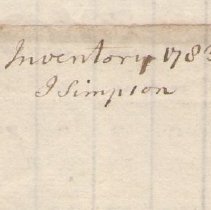 Inventory 1783
J Simpson